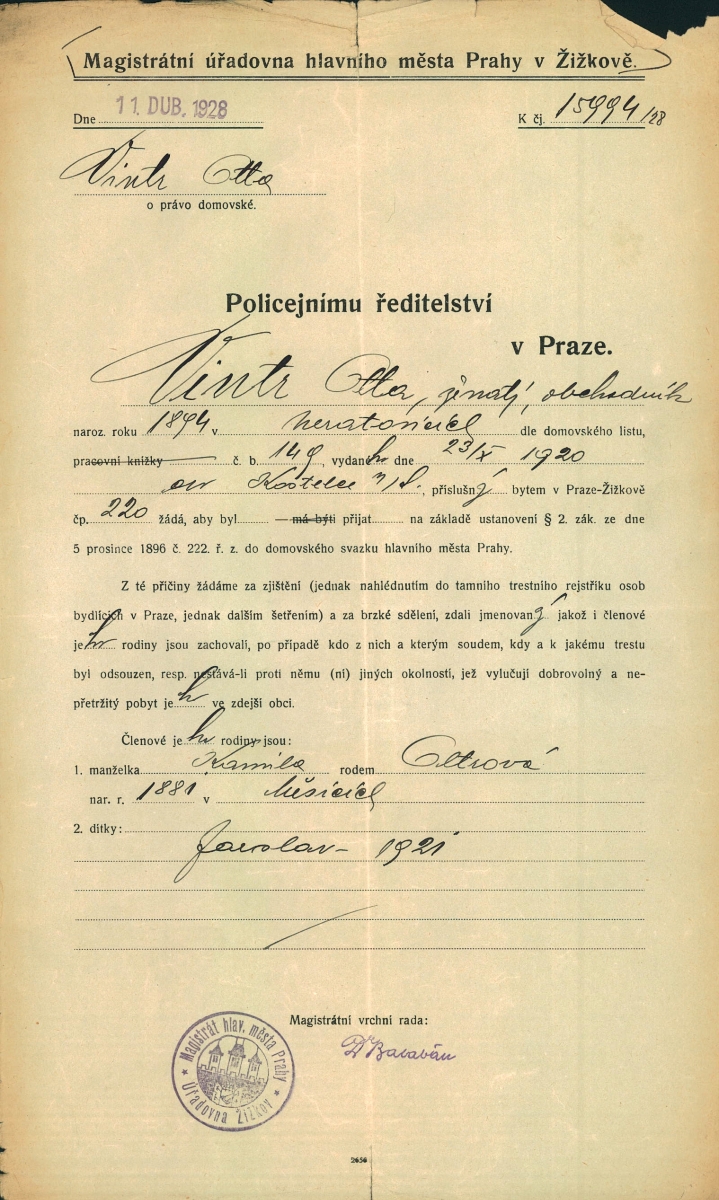 Magistrátní úřadovna hlavního města Prahy v Žižkově.
Dne 11. DUB. 1928
K čj. 15994/28
Vintr Otta
o právo domovské.
Policejnímu ředitelství
v Praze.
Vintr Otta, ženatý, obchodník
naroz. roku 1894 v Neratovicích dle domovského listu,
pracovní knížky č. b. 149, vydaného dne 23/X 1920
v Kostelci n/L., příslušný bytem v Praze-Žižkově
čp. 220 žádá, aby byl má býti přijat na základě ustanovení § 2. zák. ze dne
5 prosince 1896 č. 222. ř. z. do domovského svazku hlavního města Prahy.
Z té příčiny žádáme za zjištění (jednak nahlédnutím do tamního trestního rejstříku osob
bydlících v Praze, jednak dalším šetřením) a za brzké sdělení, zdali jmenovaný jakož i členové
jeho rodiny jsou zachovali, po případě kdo z nich a kterým soudem, kdy a k jakému trestu
byl odsouzen, resp. nestává-li proti němu (ni) jiných okolností, jež vylučují dobrovolný a ne-
přetržitý pobyt jeho ve zdejší obci.
Členové jeho rodiny jsou:
1. manželka Kamila rodem
nar. r. 1881 v Měšicích
2. dítky:
Jaroslav - 1921
Magistrátní vrchní rada:
Magistrát hlav. města Prahy
Úřadovna Žižkov
2656